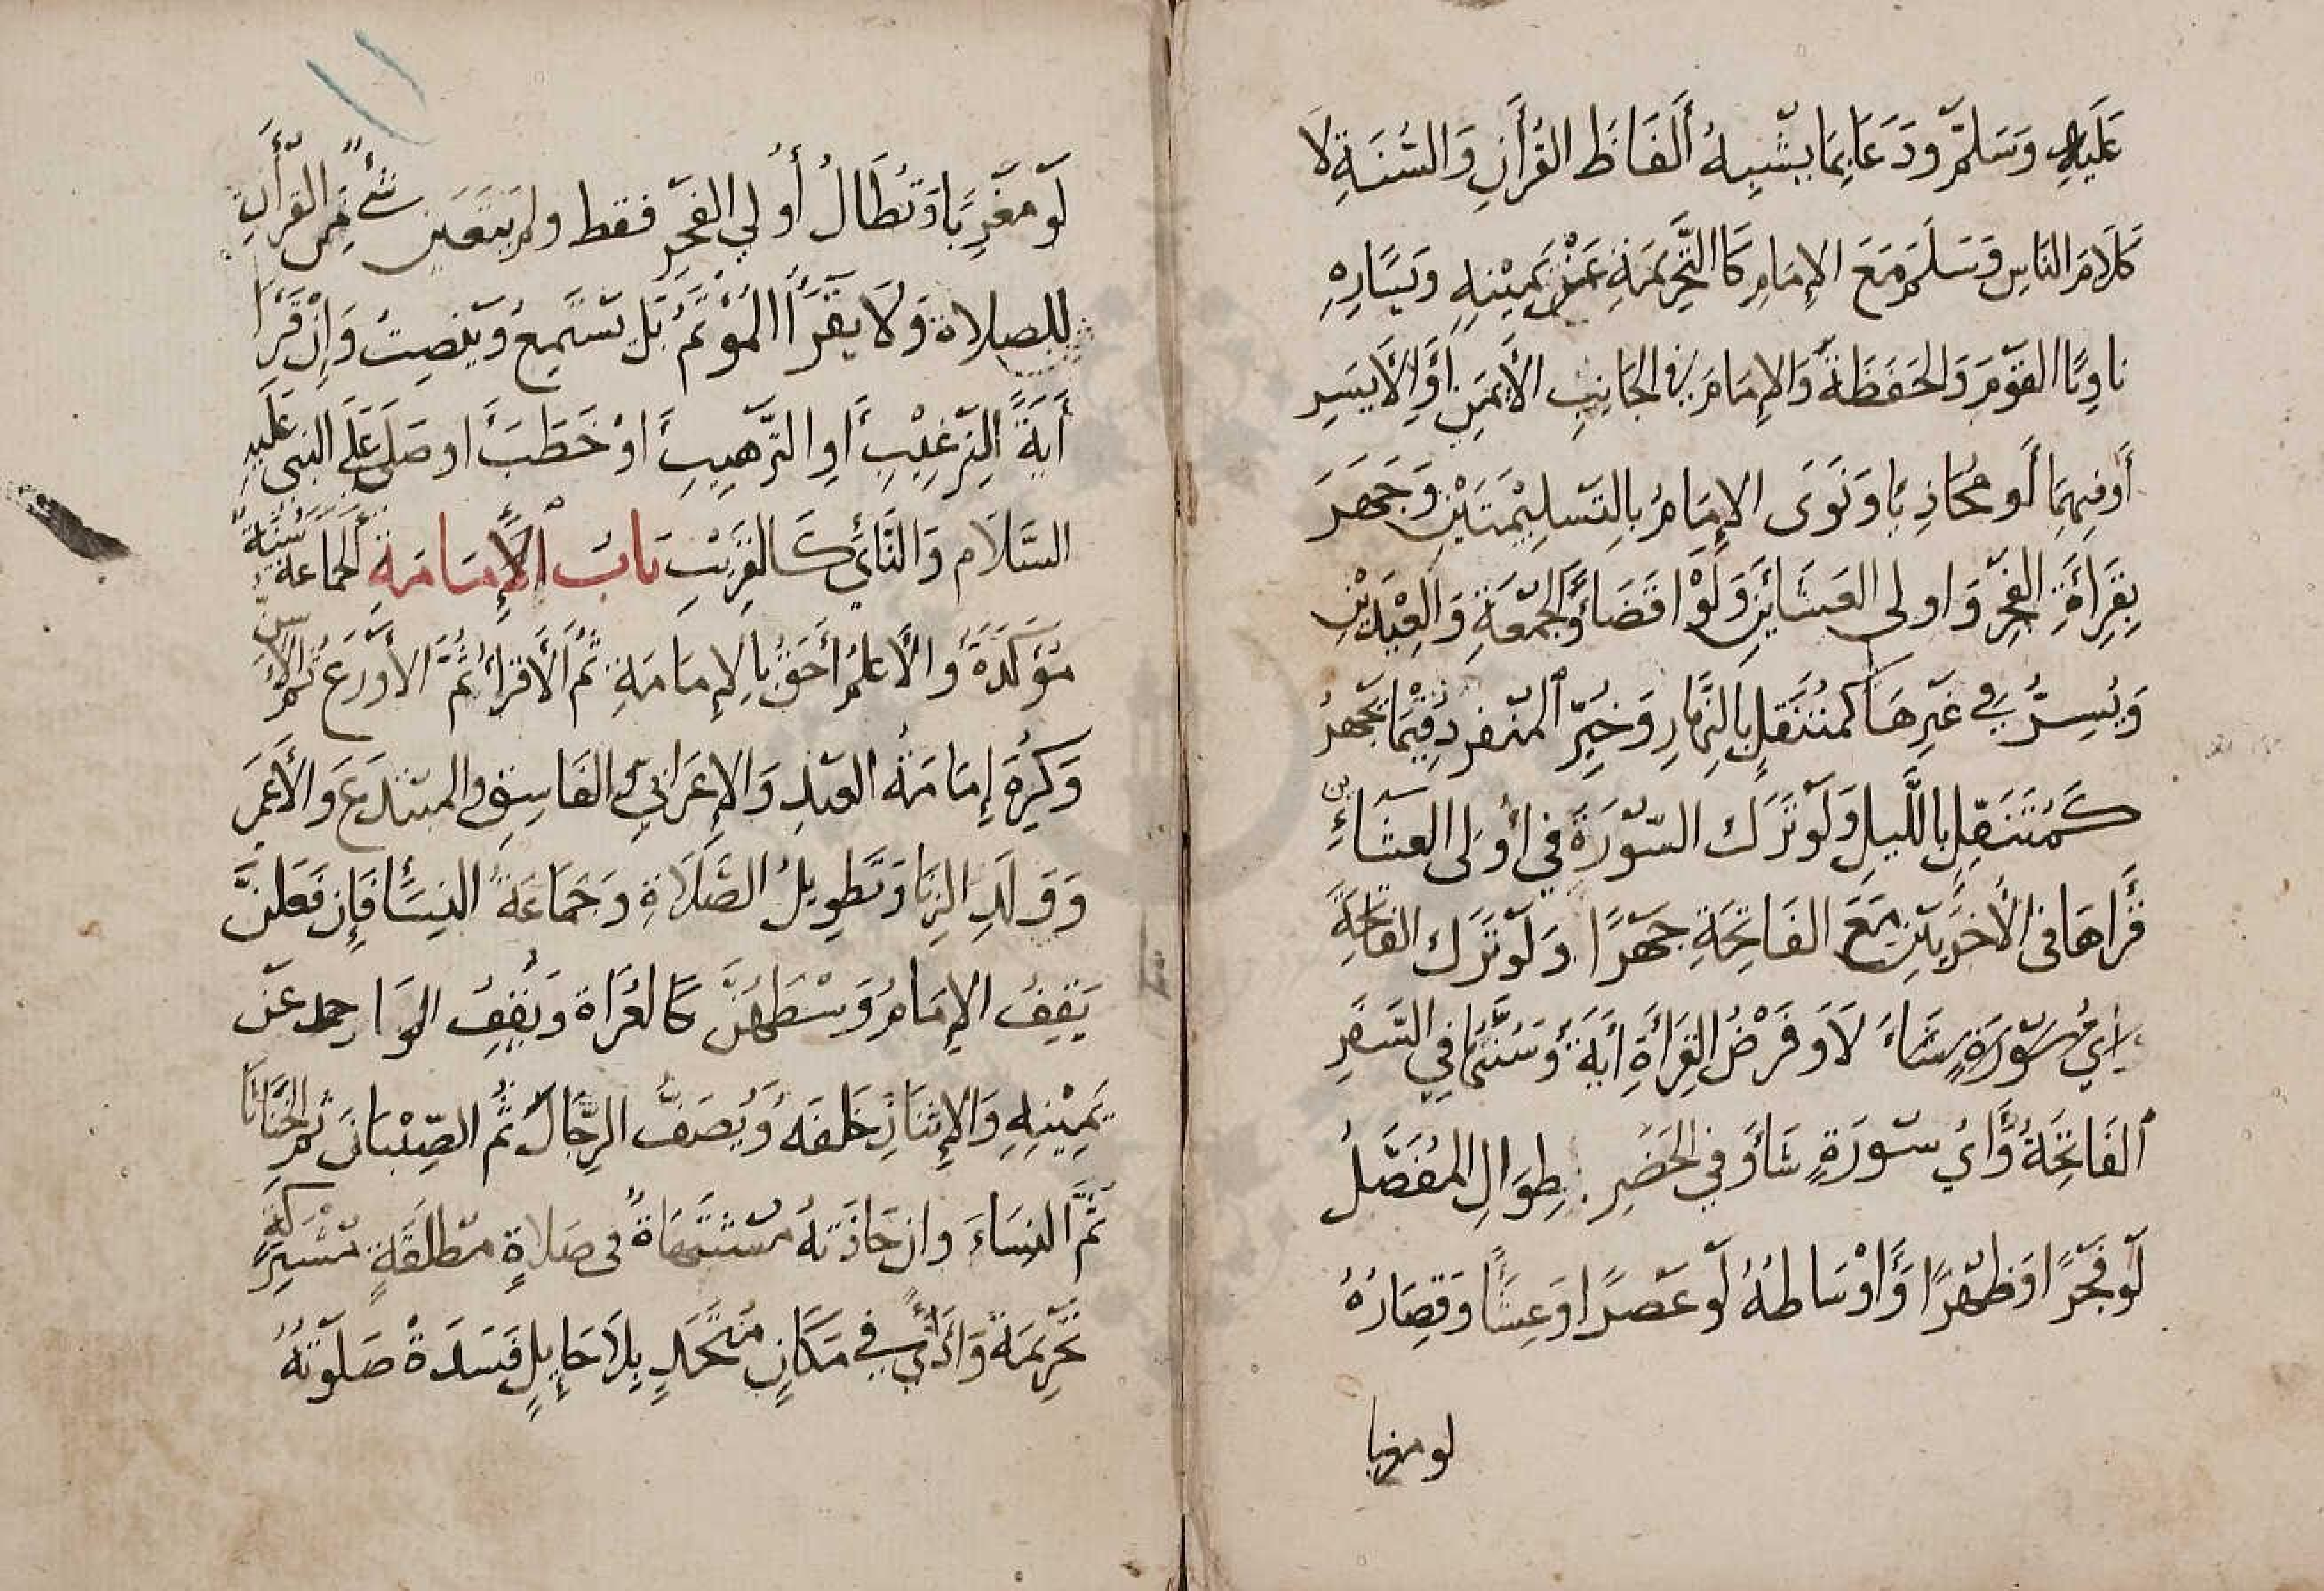 عَلَيهِ وَسَلَّمَ ودَعَا بِمَا يشْبِهُ أَلفَاظَ القُرْأَنِ وَالسُّنَةِ لَا
كَلَامَ النَاسِ وَسَلَّمَ مَعَ الإِمَامِ كَا التَّحْرِيمَةِ عَنْ يَمِيْنِهِ وَيَسَارِهِ
نَاوِيًا القَوْمَ وَالحَفَظَةَ وَالإِمَامَ فِي الجَانِبِ الأَيْمَنِ أَوِ الأَيسَرِ
أَوفِيهِمَا لَو مُحَاذِيًا وَنَوَى الإِمَامُ بِالتَسلِيْمَتَيْنِ وَجَهَرَ
بِقِرَأَةِ الفَجْرِ وَاولى العِشَائَينِ وَلَوْ قَضَاءً وَالجُمْعَةِ وَالعِيْدَيْنِ
وَيُسِرُّ فِي غَيْرِهَا كَمُتَنَفِّلٍ بِالنَّهَارِ وَخُيِّرَ المُنْفَرِدُ فِيْمَا يَجْهَرُ
كَمُتَنَفِّلٍ بِاللَّيلِ وَلَو تَرَكَ السُّوْرَةَ فِي أُولَى العِشَاءِ
قَرَأَهَا فى الأُخْرَيَيْنِ مَعَ الفَاتِحَةِ جَهْرًا وَلَو تَرَكَ الفَاتِحَةِ
أيُّ سُوْرَةٍ شَاءَ لَا وَفَرْضُ القِرَأَةِ أيَةٌ وَسُنَّتُهَا فِي السَّفَرِ
الفَاتِحَةُ وَأَيُّ سُوْرَةٍ شَأَ وَفِي الحَضَرِ طِوَالِ المُفَصَّلُ
لَو فَجْرًا اوَظُهْرًا وَأَوْسَاطُهُ لَو عَصْرًا اوَعِشًا وَقِصَارُهُ
لو مغربا
لَو مَغْرِبًا وَتُطَالُ أُولى الفَجْرِ فقط ولم يتعين شَئٌ مِنَ القُرْأَنِ
للصلاة وَلَا يقْرَأُ المُؤْتَمُّ بَلْ يَسْتَمِعُ وَيُنْصِتُ وَإِنْ قَرَأَ
أَيَةَ التَرْغِيْبِ أَوِ التَرْهِيبِ اوْ خَطَبَ او صَلَّى عَلَى النبى عَلَيهِ
السَّلَامِ وَالنَّائِي كَالقَرِيْبِ بَابُ الإِمَامَةِ الجَمَاعَة سُنَّةٌ
مُؤَكَّدَةٌ وَالأَعْلَمُ أَحَقُّ بِالإِمَامَةِ ثُمَّ الأَقْرَأُ ثُمَّ الأَوْرَعُ ثُمَّ الأَسَنُّ
وَكُرِهَ إِمَامَةُ العَبْدِ وَالإِعْرَابِيِّ وَالفَاسِقِ والمبْتَدِعَ وَالأَعْمَى
وَوَلَدِ الزِنَا وَتَطْوِيلُ الصَّلَاةِ وَجَمَاعَةُ النِسَأ فَإِن فَعَلنَ
يَقِفُ الإِمَامُ وَسْطَهُنَّ كَالعُرَاة وَيَقِفُ الوَاحِدُ عَنْ
يَمِيْنِهِ وَالإِثنَانِ خَلفَهُ وَيُصَفُّ الرِّجَالُ ثُمَّ الصِّبْيَانَ ثُمَّ الخَنَاثَا
ثُمَّ النِسَاءَ وان حَاذَتهُ مُشْتَهَاةٌ فى صَلَاةٍ مُطْلَقَةٍ مُشْتَرِكَةٍ
تَحْرِيمَةً وَأَدَاءً فِي مَكَانٍ مُتَّحَدٍ بِلَا حَايِلٍ فَسَدَةْ صَلَوتُهُ